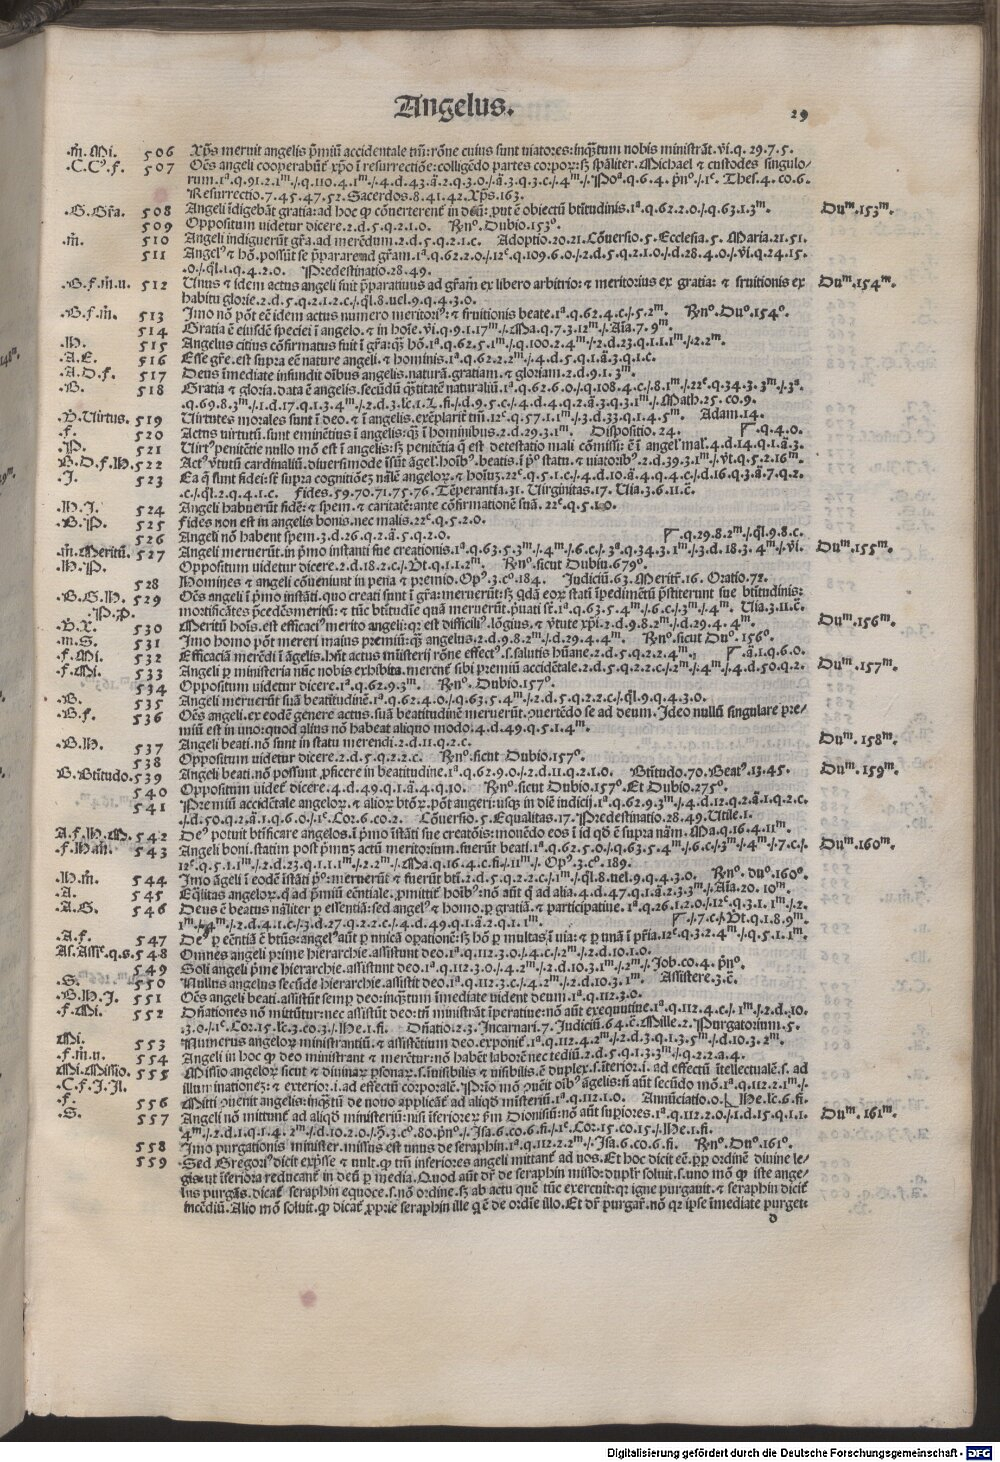 Angelus.
29
.m̃.Mi. 506 Xp̃s meruit angelis p̃miũ accidentale tm̃: rõne cuius sunt uiatores: inq̃tum nobis ministrãt. vi.q. 29.7.5.
.C.Cꝰ.f. 507 Oẽs angeli cooperabũt᷑ xp̃o ĩ resurrectiõe: colligẽdo partes corpoꝝ: sꝫ sp̃aliter. Michael ⁊ custodes singulo⸗
rum.1ª.q.91.2.1ᵐ./.q.110.4.1ᵐ./.4.d.43.ã.2.q.3.0./ã.3.q.3.c./4ᵐ./ Poª.q.6.4. p̃nº./.1ᶜ. Thes.4. co.6.
Resurrectio.7.45.47.52. Sacerdos.8.41.42. Xp̃s.163.
.G.Gr̃a. 508 Angeli ĩdigebãt gratia: ad hoc ꝙ cõuerterent᷑ in deũ: ꝓut ẽ obiectũ btĩtudinis.1ª.q.62.2.0./.q.63.1.3ᵐ. Duᵐ.153ᵐ.
509 Oppositum uidetur dicere.2.d.5.q.2.1.0. Rñº. Dubio.153º.
.m̃. 510 Angeli indiguerũt gr̃a.ad merẽdum.2.d.5.q.2.1.c. Adoptio.20.21. Cõuersio.5. Ecclesia.5. Maria.21.51.
511 Angelꝰ ⁊ hõ. possũt se p̃parare ad gr̃am.1ª.q.62.2.0./.12ᶜ.q.109.6.0./.2.d.5.q.2.1.0./.d.28.4.0./.vi.q.24.15.
.0./.ql̃.1.q.4.2.0. Predestinatio.28.49.
.G.f.m̃.u. 512 Unus ⁊ idem actus angeli fuit p̃paratiuus ad gr̃am ex libero arbitrio: ⁊ meritorius ex gratia: ⁊ fruitionis ex Duᵐ.154ᵐ.
habitu glorie.2.d.5.q.2.1.2.c./.ql̃.8.uel.9.q.4.3.0.
.G.f.m̃. 513 Imo nõ põt eẽ idem actus numero meritoriꝰ: ⁊ fruitionis beate.1ª.q.62.4.c./.5.2ᵐ. Rñº. Duº.154º.
514 Gratia ẽ eiusdẽ speciei ĩ angelo. ⁊ in hoĩe. vi.q.9.1.17ᵐ./.Ma.q.7.3.12ᵐ./.Aĩa.7.9ᵐ.
.H. 515 Angelus citius cõfirmatus fuit ĩ gr̃a: q̃ꝫ hõ.1ª.q.62.5.1ᵐ./.q.100.2.4ᵐ./.2.d.23.q.1.1.1ᵐ./.2.2ᵐ.
.A.E. 516 Esse gr̃e. est supra eẽ nature angeli. ⁊ hominis.1ª.q.62.2.2ᵐ./.4.d.5.q.1.ã.3.q.1.c.
.A.D.f. 517 Deus ĩmediate infundit oĩbus angelis. naturã. gratiam. ⁊ gloriam.2.d.9.1.3ᵐ.
.G. 518 Gratia ⁊ gloria. data ẽ angelis. secũdũ q̃titatẽ naturaliũ.1ª.q.62.6.0./.q.108.4.c./.8.1ᵐ./.22ᶜ.q.34.3.3ᵐ./.3ª.
.q.69.8.3ᵐ./.1.d.17.q.1.3.4ᵐ./.2.d.3.lc.1.L.fi./.d.9.5.c./.4.d.4.q.2.ã.3.q.3.1ᵐ./.Math.25.co.9.
.G.Uirtus. 519 Uirtutes morales sunt ĩ deo. ⁊ ĩ angelis. exẽplariť tm̃.12ᶜ.q.57.1.1ᵐ./.3.d.33.q.1.4.5ᵐ. Adam.14.
.f. 520 Actus uirtutũ. sunt eminẽtius ĩ angelis: q̃ꝫ ĩ hominibus.2.d.29.3.1ᵐ. Dispositio.24. Γ.q.4.0.
.P. 521 Uirtꝰ penitẽtie nullo mõ est ĩ angelis: sꝫ penitẽtia q̃ est detestatio mali cõmissi: ẽ ĩ angel᷑ mal᷑.4.d.14.q.1.ã.3.
G.D.f.H. 522 Actꝰ v̓tutũ cardinaliũ. diuersimode ĩsũt ãgel᷑. hoĩbꝰ. beatis. ĩ p̃º statu. ⁊ uiatoribꝰ.2.d.39.3.1ᵐ./.v̓t.q.5.2.16ᵐ.
.J. 523 Ea q̃ sunt fidei: sẽ supra cognitiõeꝫ nãlẽ angeloꝝ. ⁊ hoĩuꝫ.22ᶜ.q.5.1.c./.4.d.10.ã.4.q.4.c./.d.16.q.3.ã.7.q.2.
.c./.ql̃.2.q.4.1.c. Fides.59.70.71.75.76. Tẽperantia.31. Uirginitas.17. Uia.3.6.11.c̃.
.H.J. 524 Angeli habuerũt fidẽ: ⁊ spem. ⁊ caritatẽ: ante cõfirmationẽ suã.22ᶜ.q.5.1.0.
.G.P. 525 Fides non est in angelis bonis. nec malis.22ᶜ.q.5.2.0.
526 Angeli nõ habent spem.3.d.26.q.2.ã.5.q.2.0. Γ.q.29.8.2ᵐ./.ql̃.9.8.c.
.m̃.Meritũ. 527 Angeli meruerũt. in p̃mo instanti sue creationis.1ª.q.63.5.3ᵐ./.4ᵐ./.6.c./.3ª.q.34.3.1ᵐ./.3.d.18.3.4ᵐ./.vi. Duᵐ.155ᵐ.
.H.P. Oppositum uidetur dicere.2.d.18.2.c./.Vt.q.1.1.2ᵐ. Rñº. sicut Dubiũ.679º.
528 Homines ⁊ angeli cõueniunt in pena ⁊ premio. Opꝰ.3.cº.184. Judiciũ.63. Merit᷑.16. Oratio.72.
.G.G.H. 529 Oẽs angeli ĩ p̃mo instãti. quo creati sunt ĩ gr̃a: meruerũt: sꝫ q̃dã eoꝝ stati ĩpedimẽtũ p̃stiterunt sue btĩtudinis:
.P.p̃. mortificãtes p̃cedẽs meritũ: ⁊ tũc btĩtudĩe quã meruerũt. p̃uati sẽ.1ª.q.63.5.4ᵐ./.6.c./.3ᵐ./.4ᵐ. Uia.3.11.c̃.
.G.X. 530 Meritũ hoĩs. est efficaciꝰ merito angeli: qꝛ est difficiliꝰ. lõgius. ⁊ v̓tute xp̃i.2.d.9.8.2ᵐ./.d.29.4.4ᵐ. Duᵐ.156ᵐ.
m.S. 531 Imo homo põt mereri maius premiũ: q̃ꝫ angelus.2.d.9.8.2ᵐ./.d.29.4.4ᵐ. Rñº. sicut Duº.156º.
.f.Mi. 532 Efficaciã merẽdi ĩ ãgelis. hñt actus mĩsterij rõne effectꝰ. s. salutis hũane.2.d.5.q.2.2.4ᵐ. Γ.ã.1.q.6.0.
.f.Mi. 533 Angeli ꝑ ministeria nũc nobis exhibita. merent᷑ sibi premiũ accidẽtale.2.d.5.q.2.2.c./.2ᵐ./.4ᵐ./.4.d.50.q.2. Duᵐ.157ᵐ.
534 Oppositum uidetur dicere.1ª.q.62.9.3ᵐ. Rñº. Dubio.157º.
.G. 535 Angeli meruerũt suã beatitudinẽ.1ª.q.62.4.0./.q.63.5.4ᵐ./.2.d.5.q.2.2.c./.ql̃.9.q.4.3.0.
.G.f. 536 Oẽs angeli. ex eodẽ genere actus. suã beatitudinẽ meruerũt. ꝯuertẽdo se ad deum. Ideo nullũ singulare pre⸗
miũ est in uno: quod alius nõ habeat aliquo modo.4.d.49.q.5.1.4ᵐ.
.G.H. 537 Angeli beati. nõ sunt in statu merendi.2.d.11.q.2.c. Duᵐ.158ᵐ.
538 Oppositum uidetur dicere.2.d.5.q.2.2.c. Rñº. sicut Dubio.157º.
G.Btĩtudo. 539 Angeli beati. nõ possunt ꝓficere in beatitudine.1ª.q.62.9.0./.2.d.11.q.2.1.0. Btĩtudo.70. Beatꝰ.13.45. Duᵐ.159ᵐ.
540 Oppositum uideť dicere.4.d.49.q.1.ã.4.q.10. Rñº. sicut Dubio.157º. Et Dubio.275º.
541 Premiũ accidẽtale angeloꝝ. ⁊ alioꝝ btõꝝ. põt augeri: usqꝫ in diẽ iudicij.1ª.q.62.9.3ᵐ./.4.d.12.q.2.ã.1.q.2.c.
./.d.50.q.2.ã.1.q.6.0./.1ᶜ.Cor.6.co.2. Cõuersio.5. Equalitas.17. Predestinatio.28.49. Utile.1.
A.f.H.M. 542 Deꝰ potuit btĩficare angelos. ĩ p̃mo ĩstãti sue creatõis: mouẽdo eos ĩ id qd̃ ẽ supra nãm. Ma.q.16.4.11ᵐ.
.f.H.m̃. 543 Angeli boni. statim post p̃muꝫ actũ meritorium. fuerũt beati.1ª.q.62.5.0./.q.63.5.4ᵐ./.6.c./.3ᵐ./.4ᵐ./.7.c./. Duᵐ.160ᵐ.
12ᶜ.q.5.1.1ᵐ./.2.d.23.q.1.1.1ᵐ./.2.2ᵐ./.Ma.q.16.4.c.fi./.11ᵐ./. Opꝰ.3.cº.189.
.H.m̃. 544 Imo ãgeli ĩ eodẽ ĩstãti p̃º: meruerũt ⁊ fuerũt btĩ.2.d.5.q.2.2.c./.1ᵐ./.ql̃.8.uel.9.q.4.3.0. Rñº. duº.160º.
.A. 545 Eq̃litas angeloꝝ. q̃ ad p̃miũ eẽntiale. ꝓmittit᷑ hoĩbꝰ: nõ aũt q̃ ad alia.4.d.47.q.1.ã.2.3.3ᵐ./.Aĩa.20.10ᵐ.
.A.G. 546 Deus ẽ beatus nãliter ꝑ essentiã: sed angelꝰ ⁊ homo. ꝑ gratiã. ⁊ participatiue.1ª.q.26.1.2.0./.12ᶜ.q.3.1.1ᵐ./.2.
1ᵐ./.4ᵐ./.2.d.4.1.c./.3.d.27.q.2.2.c./.4.d.49.q.1.ã.2.q.1.1ᵐ. Γ./.7.c./.Vt.q.1.8.9ᵐ.
.A.f. 547 Deꝰ ꝑ eẽntiã ẽ btũs: angelꝰ aũt ꝑ unicã oꝑationẽ: sꝫ hõ ꝑ multas ĩ uia: ⁊ ꝑ unã ĩ pr̃ia.12ᶜ.q.3.2.4ᵐ./.q.5.1.1ᵐ.
As.Assr̃ᶜ.q.s. 548 Omnes angeli prime hierarchie. assistunt deo.1ª.q.112.3.0./.4.c./.2ᵐ./.2.d.10.1.0.
549 Soli angeli p̃me hierarchie. assistunt deo.1ª.q.112.3.0./.4.2ᵐ./.2.d.10.3.1ᵐ./.2ᵐ./.Job.co.4.p̃nº.
.S. 550 Nullus angelus secũde hierarchie. assistit deo.1ª.q.112.3.c./.4.2ᵐ./.2.d.10.3.1ᵐ. Assistere.3.c̃.
.G.H.J. 551 Oẽs angeli beati. assistũt semꝑ deo: inq̃tum ĩmediate uident deum.1ª.q.112.3.0.
.f.Mi. 552 Dñationes nõ mittũtur: nec assistũt deo: tñ ministrãt ĩperatiue: nõ aũt exequutiue.1ª.q.112.4.c./.1ᵐ./.2.d.10.
.3.0./.1ᶜ.Cor.15.lc̃.3.co.3./.He.1.fi. Dñatio.2.3. Incarnari.7. Judiciũ.64.c̃. Mille.2. Purgatorium.5.
Mi. 553 Numerus angeloꝝ ministrantiũ. ⁊ assistẽtium deo. exponit᷑.1ª.q.112.4.2ᵐ./.2.d.3.q.1.3.5ᵐ./.d.10.3.2ᵐ.
.f.m̃.u. 554 Angeli in hoc ꝙ deo ministrant ⁊ merẽtur: nõ habẽt laborẽ nec tediũ.2.d.5.q.1.3.3ᵐ./.q.2.2.a.4.
.Mi.Missio. 555 Missio angeloꝝ sicut ⁊ diuinaꝝ ꝑsonaꝝ. s.ĩuisibilis ⁊ uisibilis. ẽ duplex. s.ĩterior. i. ad effectũ ĩtellectualẽ. s. ad
.C.f.J.Jl. illuminationeꝫ: ⁊ exterior. i. ad effectũ corporalẽ. Prĩo mõ ꝯuẽit oĩbꝰ ãgelis: fi aũt secũdo mõ.1ª.q.112.2.1ᵐ./.
.f. 556 Mitti ꝯuenit angelis: inq̃tũ de nouo applicãt᷑ ad aliqd̃ mĩsteriũ.1ª.q.112.1.0. Annũciatio.0. He.lc.6.fi.
.S. 557 Angeli nõ mittunt᷑ ad aliqd̃ ministeriũ: nisi ĩferiores: ẜm Dionisiũ: nõ aũt suꝑiores.1ª.q.112.2.0./.1.d.15.q.1.1. Duᵐ.161ᵐ.
4ᵐ./.2.d.1.q.1.4.2ᵐ./.d.10.2.0./.p̃.3.cº.80.p̃nº./.Isa.6.co.6.fi./.1ᶜ.Cor.15.co.15./.He.1.fi.
558 Imo purgationis minister. missus est unus de seraphin.1ª.q.112.2.2ᵐ./.Isa.6.co.6.fi. Rñº. Duº.161º.
559 Sed Gregoriꝰ dicit exp̃sse ⁊ uult. ꝙ tm̃ inferiores angeli mittant᷑ ad nos. Et hoc dicit eẽ. ꝓꝑ ordinẽ diuine le⸗
gis. ut ĩferiora reducant᷑ in deũ ꝑ media. Quod aũt dr̃ de seraphin misso: duplr̃ soluit. s. uno mõ ꝙ iste ange⸗
lus purgãs. dicat᷑ seraphin equoce. s. nõ ordine. sꝫ ab actu quẽ tũc exercuit: qꝛ igne purgauit. ⁊ seraphin dicit᷑
incẽdiũ. Alio mõ soluit. ꝙ dicat᷑ ꝓprie seraphin ille q̃ ẽ de ordĩe illo. Et dr̃ purgar᷑. nõ qꝛ ipse ĩmediate purget:
d
Digitalisierung gefördert durch die Deutsche Forschungsgemeinschaft - DFG